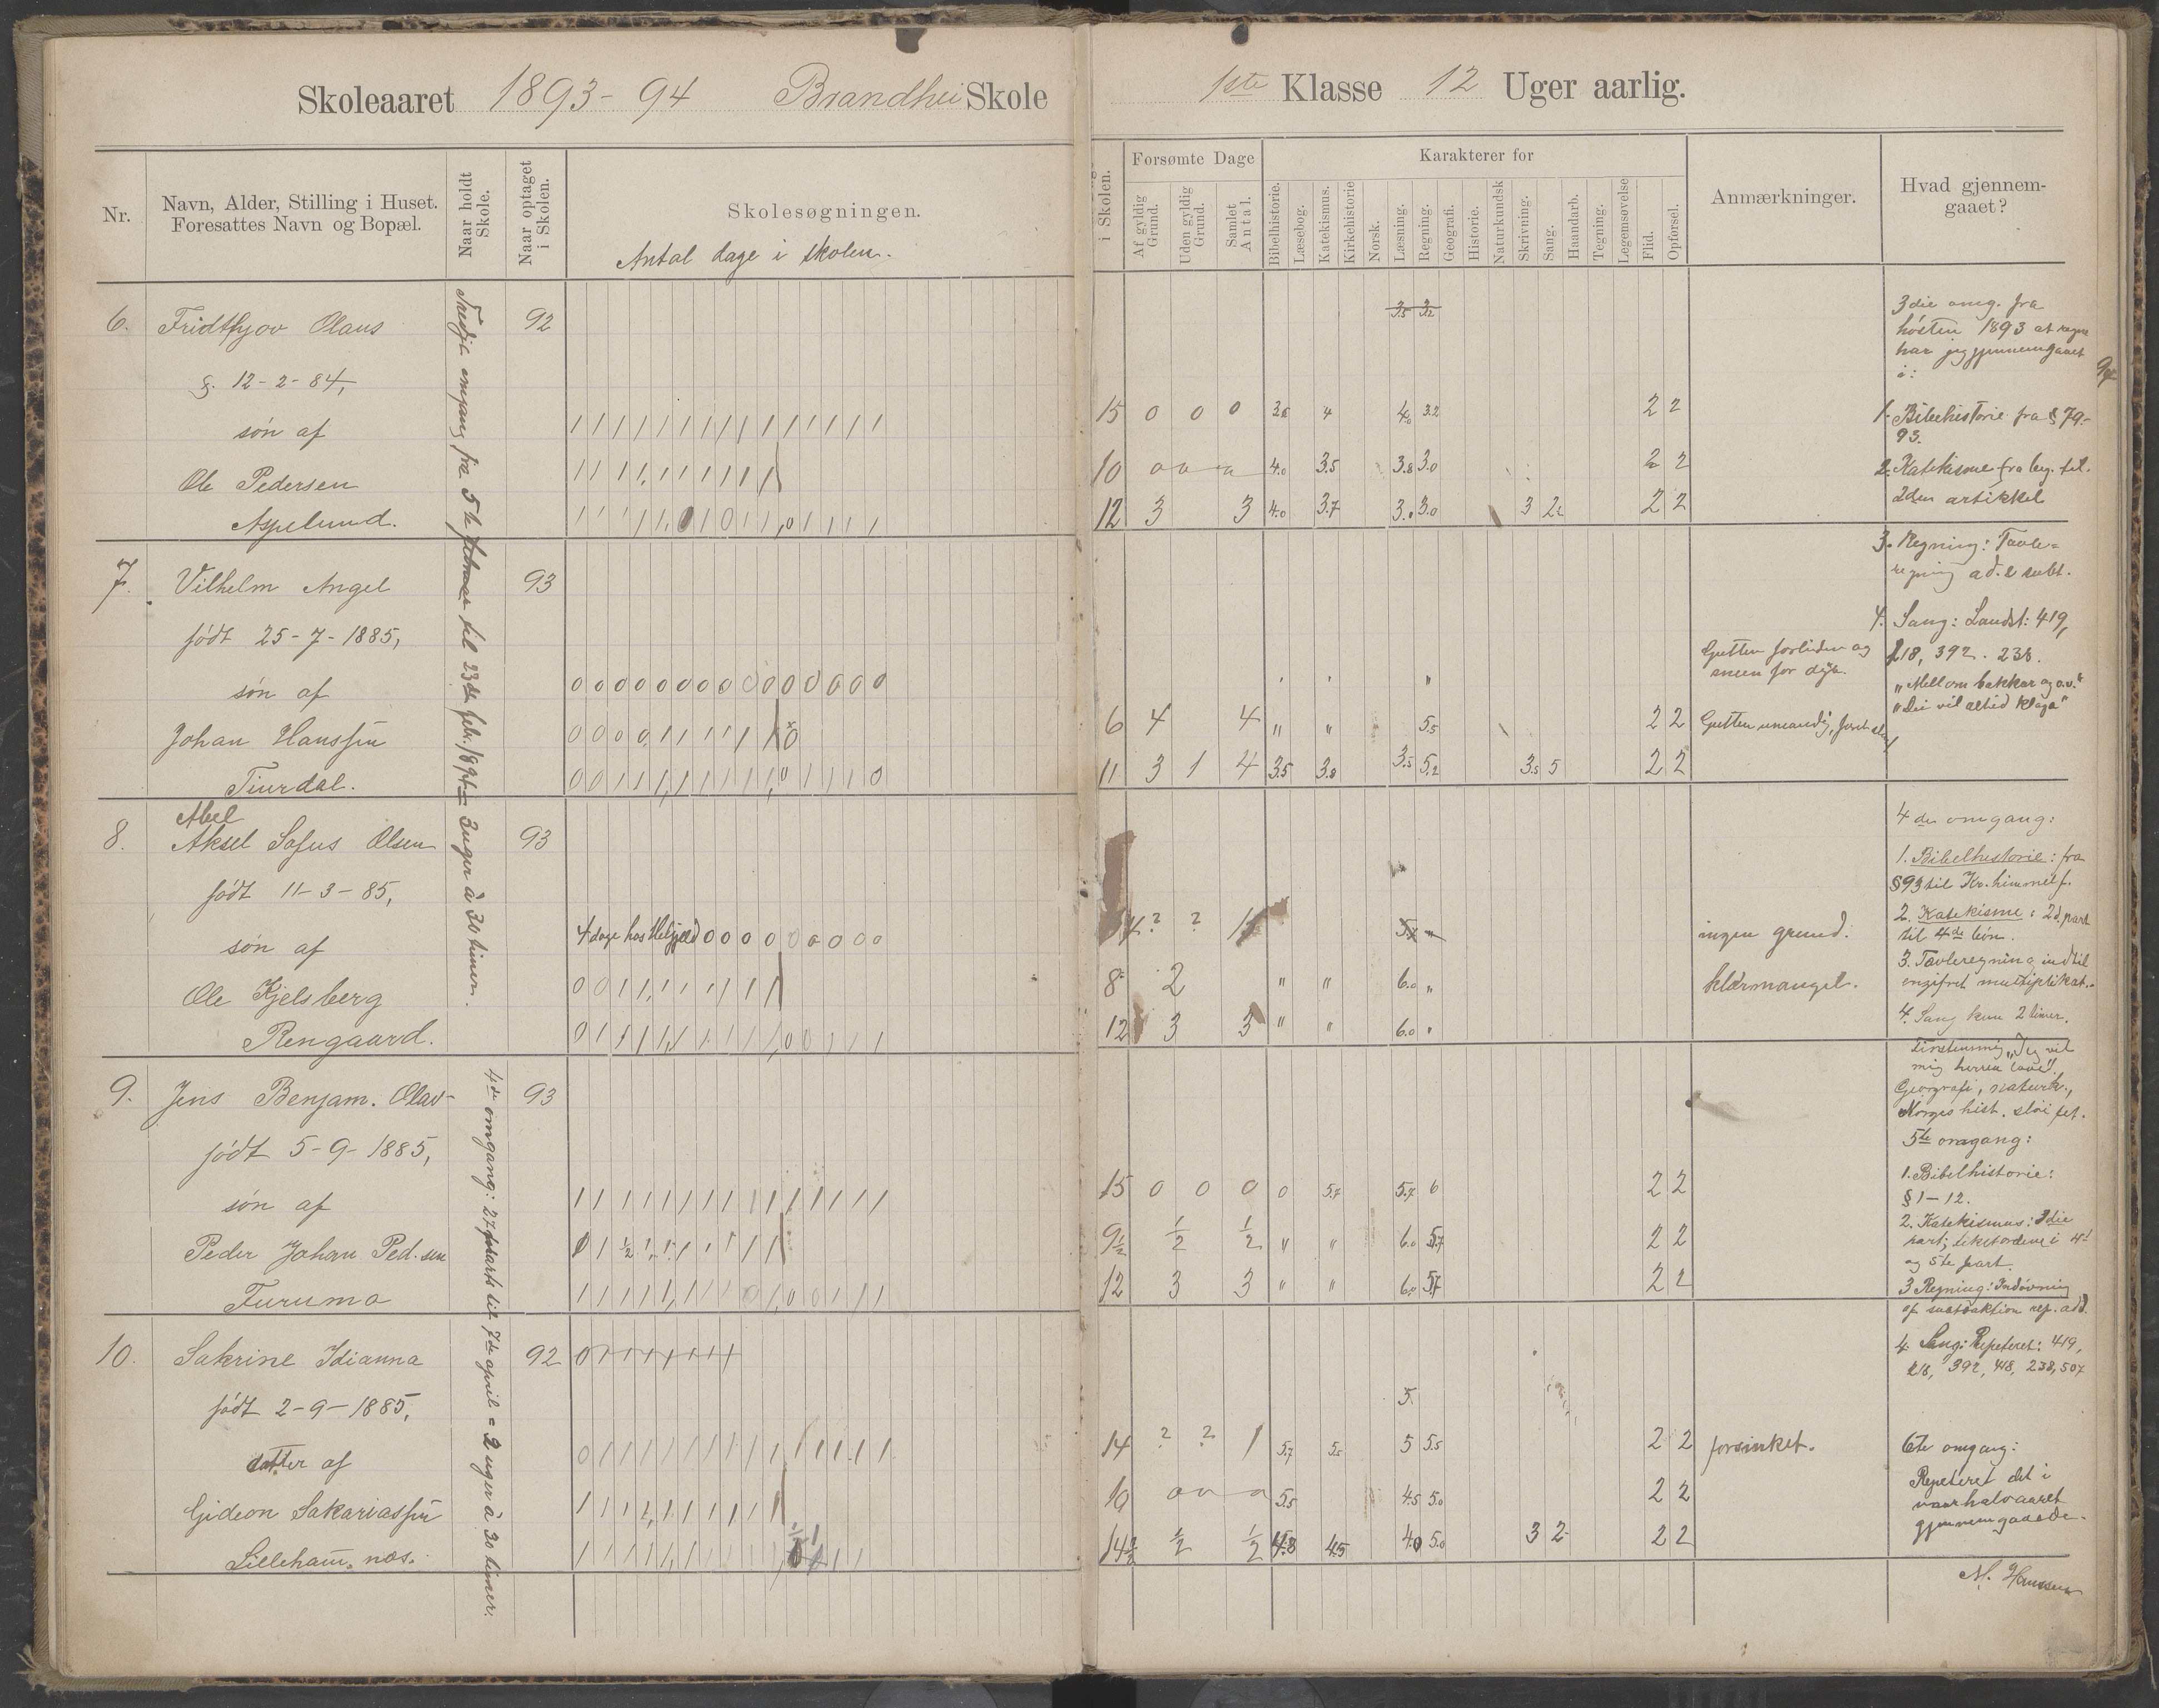 Skoleaaret 1893-94 Brandhei Skole
1ste Klasse 12 Uger aarlig.
Nr.
Navn, Alder, Stilling i Huset.
Foresattes Navn og Bopæl.
Naar holdt
Skole.
Naar optaget
i Skolen.
Skolesøgningen.
Antal dage i skolen.
i Skolen.
Forsømte Dage
Af gyldig
Grund.
Uden gyldig
Grund.
Samlet
Antal.
Karakterer for
Bibelhistorie.
Læsebog.
Katekismus.
Kirkehistorie
Norsk.
Læsning.
Regning.
Geografi.
Historie.
Naturkundsk
Skrivning.
Sang.
Haandarb.
Tegning.
Legemsøvelse
Flid.
Opførsel.
Anmærkninger.
Hvad gjennem-
gaaet?
Tredje omgang fra 5te februar til 23de febr. 1894 = 3 uger à 30 timer.
4de omgang: 27 marts til 7de april = 2 uger à 30 timer.
6. Fridthjov Olaus 92
f. 12-2-84,
søn af
15 0 0 0 4 3.2 2 2
Ole Pedersen
10 4.0 3.5 3.8 3.0 2 2
Aspelund.
12 3 3 4.0 3.7 3.0 3 2 2 2
7. Vilhelm Angel 93
født 25-7-1885,
søn af
0 0 0 0 0 0 0 0 0 0 0 0 0 0 0
Gutten forliden og
sneen for dyb.
Johan Hanssen
6 4 4 " " 5.5 2 2 Gutten
Tiurdal.
11 3 1 4 3.5 3.8 3.5 5.2 3.5 5 2 2
Abel
8. Aksel Sofus Olsen 93
født 11-3-85,
søn af
4 dage hos 0 0 0 0 0 0 0 0 0
? ? ingen grund.
Ole Kjelsberg
8 2 " " 6.0 " klærmangel.
Rengaard.
12 3 3 " " 6.0 "
9. Jens Benjam. Olav- 93
født 5-9-1885,
søn af
15 0 0 0 0 5.7 5.7 6 2 2
Peder Johan Ped.sen
9½ ½ ½ " " 6.0 5.7 2 2
Furumo
12 3 3 " " 6.0 5.7 2 2
10. Sakrine Idianna 92
født 2-9-1885,
5.
datter af
14 ? ? 1 5.7 5.5 5 5.5 2 2 forsinket.
Gideon Sakariassen
10 5.5 4.5 5.0 2 2
Lilleham. næs.
14½ ½ ½ 4.8 4.5 4.0 5.0 3 2 2 2
3die omg. fra
høsten 1893 at regne
har jeg gjennemgaaet
i:
1. Bibelhistorie fra § 79-
93.
2. Katekisme fra beg. til
2den artikkel
3. Regning: Tavle-
regning ad. & subt.
4. Sang: Landst: 419,
218, 392. 238.
"Mellom bakkar og o.v."
"Dei vil altid klaga"
4de omgang:
1. Bibelhistorie: fra
§ 93 til Kr. himmelf.
2. Katekisme: 2d. part
til 4de bøn.
3. Tavleregning indtil
ensifret multiplikat.
4. Sang kun 2 timer.
Tirstemmig "Jeg vil
mig herren love".
Geografi, naturk.,
Norges hist.
5te omgang:
1. Bibelhistorie:
§ 1-12.
2. Katekismus: 3die
part; i 4d
og 5te part.
3 Regning: Indøvning
af subtraktion rep. add.
4. Sang: Repeteret: 419,
218, 392, 418, 238, 507
6te omgang:
Repeteret det i
vaarhalvaaret
gjennemgaaede.
M. Hanssen